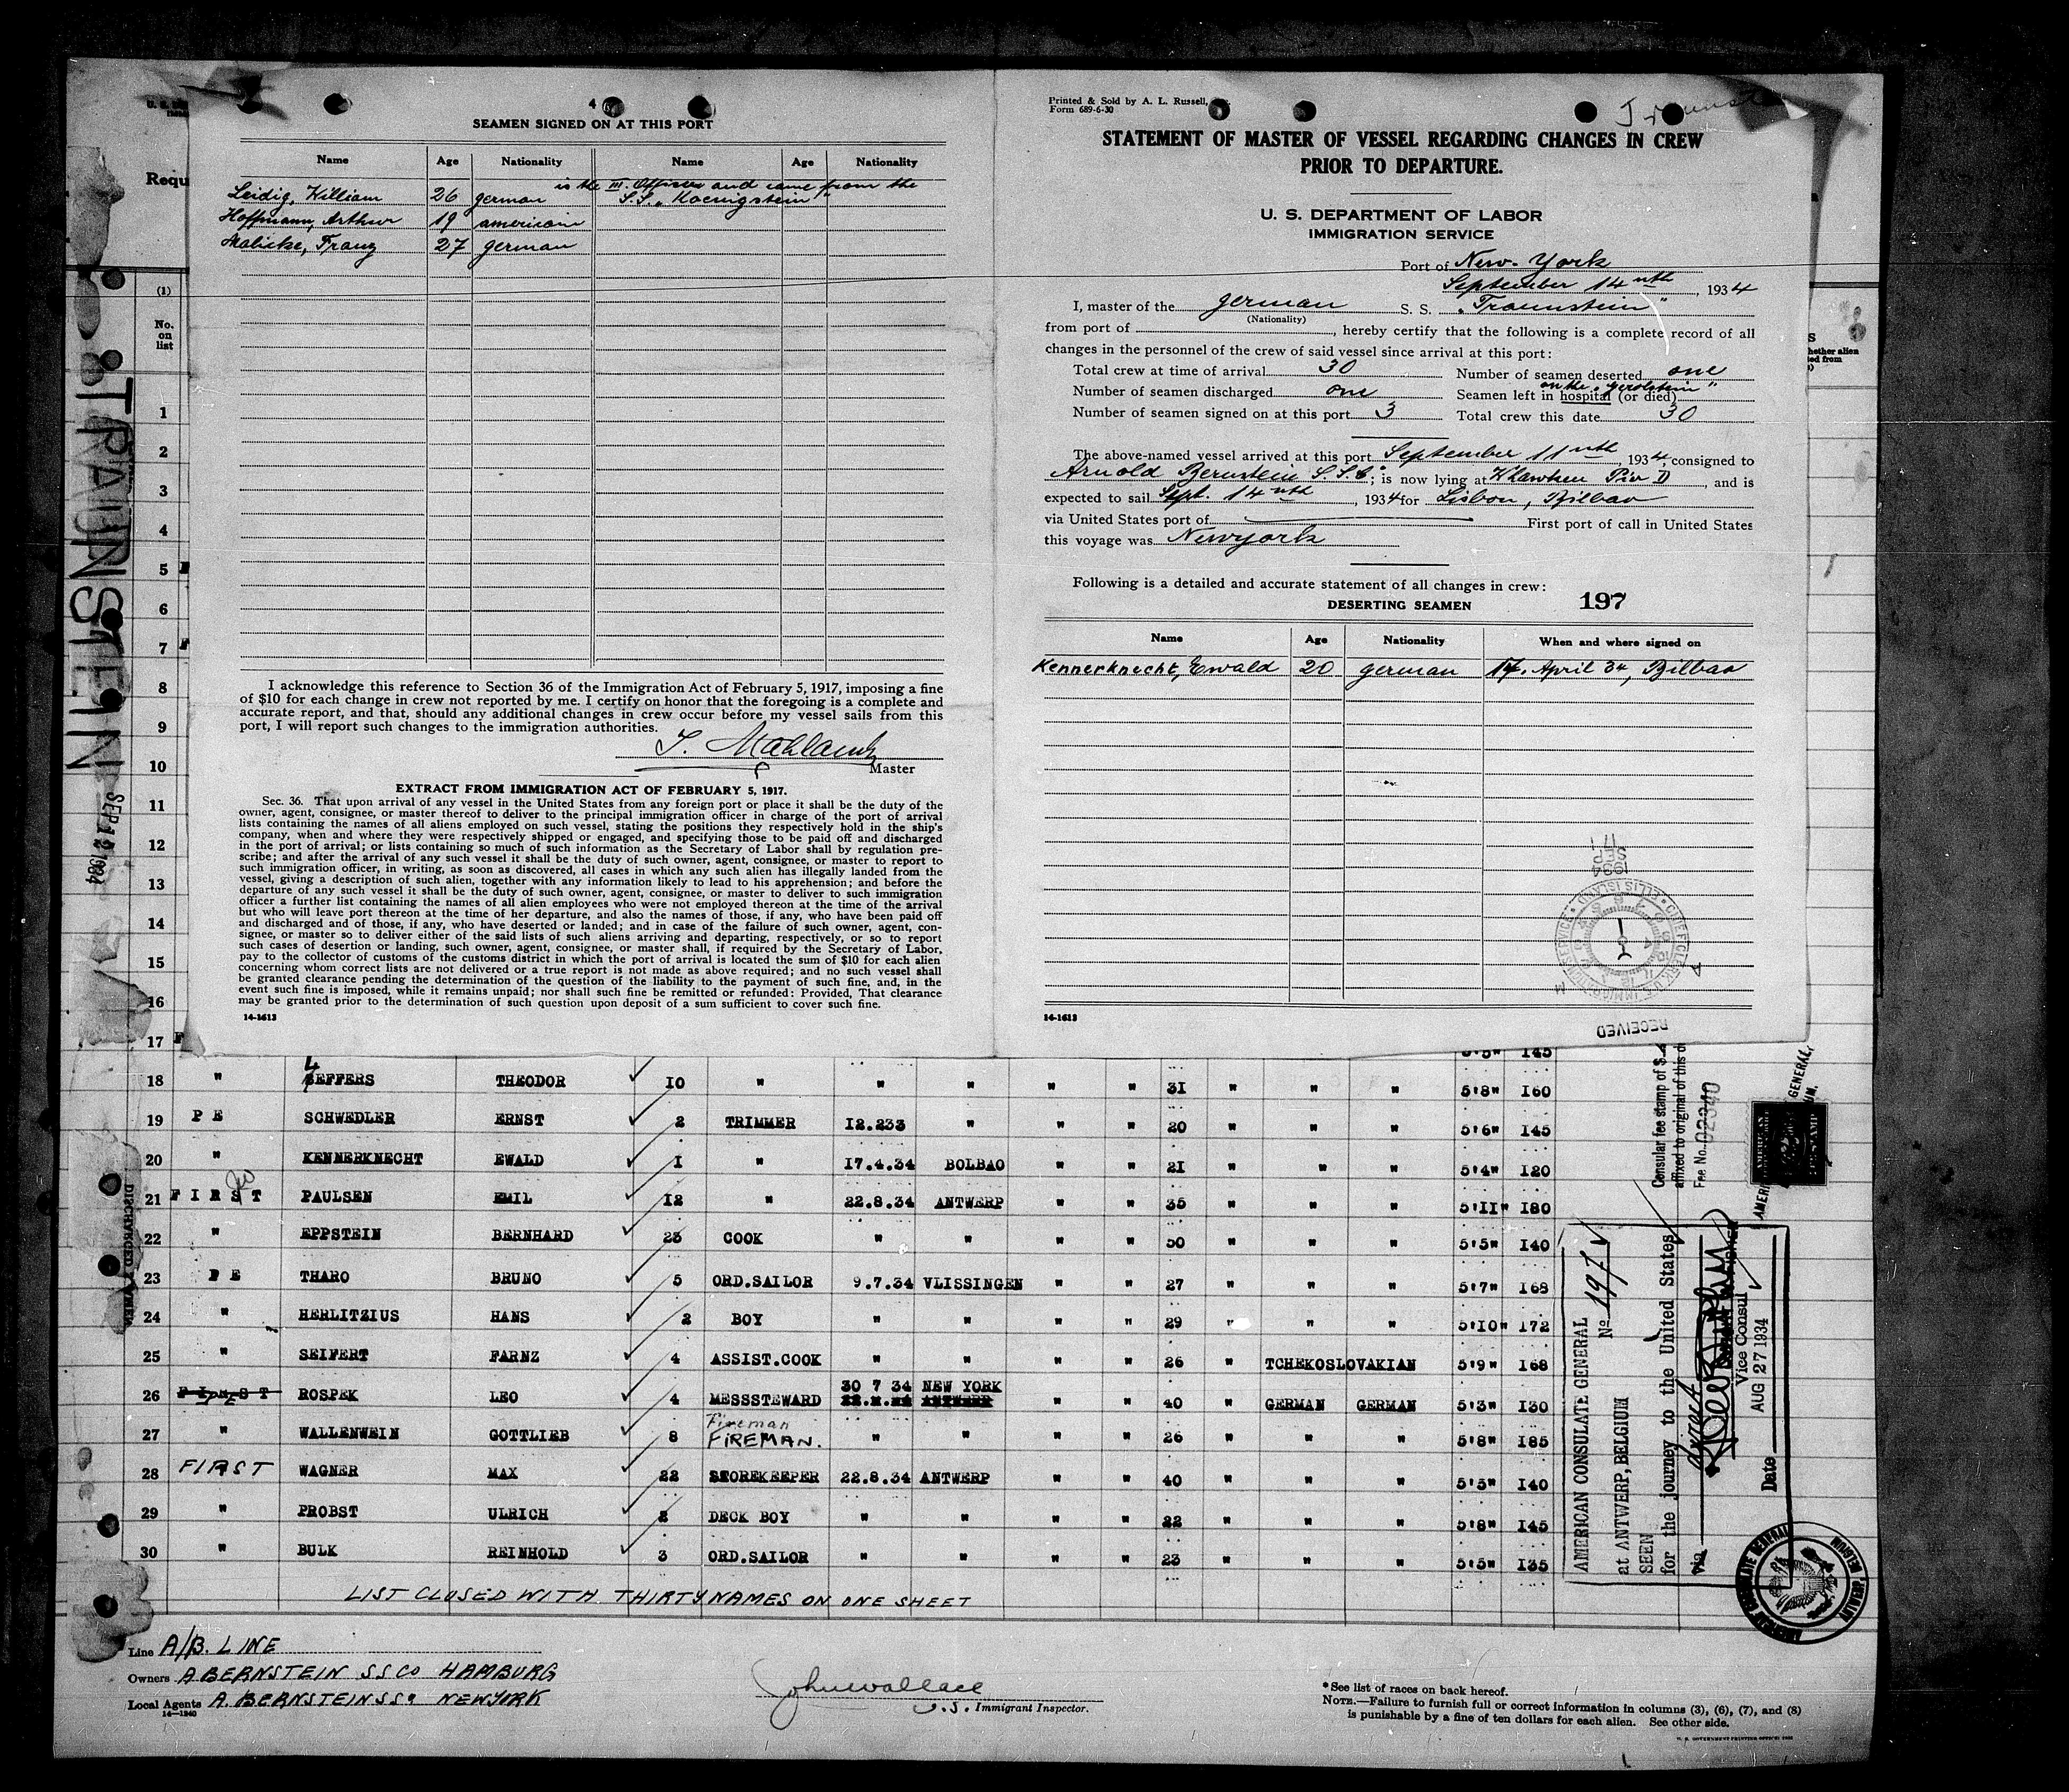 4
SEAMEN SIGNED ON AT THIS PORT
Name Age Nationality Name Age Nationality
is the III. Officer and came from the
Leidig, William 26 german S.S. „Koenigstein"
Hoffmann, Arthur 19 american
Maliske, Franz 27 german
I acknowledge this reference to Section 36 of the Immigration Act of February 5, 1917, imposing a fine
of $10 for each change in crew not reported by me. I certify on honor that the foregoing is a complete and
accurate report, and that, should any additional changes in crew occur before my vessel sails from this
port, I will report such changes to the immigration authorities.
Master
EXTRACT FROM IMMIGRATION ACT OF FEBRUARY 5, 1917.
Sec. 36. That upon arrival of any vessel in the United States from any foreign port or place it shall be the duty of the
owner, agent, consignee, or master thereof to deliver to the principal immigration officer in charge of the port of arrival
lists containing the names of all aliens employed on such vessel, stating the positions they respectively hold in the ship's
company, when and where they were respectively shipped or engaged, and specifying those to be paid off and discharged
in the port of arrival; or lists containing so much of such information as the Secretary of Labor shall by regulation pre-
scribe; and after the arrival of any such vessel it shall be the duty of such owner, agent, consignee, or master to report to
such immigration officer, in writing, as soon as discovered, all cases in which any such alien has illegally landed from the
vessel, giving a description of such alien, together with any information likely to lead to his apprehension; and before the
departure of any such vessel it shall be the duty of such owner, agent, consignee, or master to deliver to such immigration
officer a further list containing the names of all alien employees who were not employed thereon at the time of the arrival
but who will leave port thereon at the time of her departure, and also the names of those, if any, who have been paid off
and discharged and of those, if any, who have deserted or landed; and in case of the failure of such owner, agent, con-
signee, or master so to deliver either of the said lists of such aliens arriving and departing, respectively, or so to report
such cases of desertion or landing, such owner, agent, consignee, or master shall, if required by the Secretary of Labor,
pay to the collector of customs of the customs district in which the port of arrival is located the sum of $10 for each alien
concerning whom correct lists are not delivered or a true report is not made as above required; and no such vessel shall
be granted clearance pending the determination of the question of the liability to the payment of such fine, and, in the
event such fine is imposed, while it remains unpaid; nor shall such fine be remitted or refunded: Provided, That clearance
may be granted prior to the determination of such question upon deposit of a sum sufficient to cover such fine.
14-1613
Printed & Sold by A. L. Russell,
Form 689-6-30
STATEMENT OF MASTER OF VESSEL REGARDING CHANGES IN CREW
PRIOR TO DEPARTURE.
U. S. DEPARTMENT OF LABOR
IMMIGRATION SERVICE
Port of New-York
September 14nth, 1934
I, master of the german S. S. „Traunstein"
(Nationality)
from port of , hereby certify that the following is a complete record of all
changes in the personnel of the crew of said vessel since arrival at this port:
Total crew at time of arrival 30 Number of seamen deserted one
on the „Gerolstein"
Number of seamen discharged one Seamen left in hospital (or died)
Number of seamen signed on at this port 3 Total crew this date 30
The above-named vessel arrived at this port September 11nth, 1934, consigned to
Arnold Bernstein S.S.C°; is now lying at Pier D, and is
expected to sail Sept. 14nth, 1934 for Lisbon, Bilbao
via United States port of First port of call in United States
this voyage was Newyork
Following is a detailed and accurate statement of all changes in crew:
DESERTING SEAMEN 197
Name Age Nationality When and where signed on
Kennerknecht, Ewald 20 german 17. April 34, Bilbao
1934
SEP
CHIEF CLERK U.S. IMMIGRATION SERVICE ELLIS ISLAND
RECEIVED
14-1613
Requ
(1)
No.
on
list
whether alien
TRAUNSTEIN
SEP 12 1934
1
2
3
4
5
6
7
8
9
10
11
12
13
14
15
16
17 5'5" 145
18 " LEFFERS THEODOR 10 " " " " " 31 " " " 5'8" 160
19 PE SCHWEDLER ERNST 2 TRIMMER 12.233 " " " 20 " " " 5'6" 145
20 " KENNERKNECHT EWALD 1 " 17.4.34 BOLBAO " " 21 " " " 5'4" 120
21 FIRST PAULSEN EMIL 12 " 22.8.34 ANTWERP " " 35 " " " 5'11" 180
22 " EPPSTEIN BERNHARD 23 COOK " " " " 50 " " " 5'5" 140
23 PE THARO BRUNO 5 ORD.SAILOR 9.7.34 VLISSINGEN " " 27 " " " 5'7" 163
24 " HERLITZIUS HANS 2 BOY " " " " 29 " " " 5'10" 172
25 " SEIFERT FARNZ 4 ASSIST.COOK " " " " 26 " TCHEKOSLOVAKIAN 5'9" 168
30 7 34 NEW YORK
26 FIRST ROSPEK LEO 4 MESSSTEWARD " " 40 " GERMAN GERMAN 5'3" 130
Fireman
27 " WALLENWEIN GOTTLIEB 8 FIREMAN. " " " " 26 " " " 5'8" 185
28 FIRST WAGNER MAX 22 STOREKEEPER 22.8.34 ANTWERP " " 40 " " " 5'5" 140
29 " PROBST ULRICH 2 DECK BOY " " " " 22 " " " 5'8" 145
30 " BULK REINHOLD 3 ORD.SAILOR " " " " 23 " " " 5'5" 135
LIST CLOSED WITH THIRTY NAMES ON ONE SHEET
Line A/B. LINE
Owners A BERNSTEIN SS CO HAMBURG
Local Agents A. BERNSTEIN SS° NEWYORK
14—1240
John Wallace
U.S. Immigrant Inspector.
*See list of races on back hereof.
NOTE.—Failure to furnish full or correct information in columns (3), (6), (7), and (8)
is punishable by a fine of ten dollars for each alien. See other side.
Consular fee stamp of $
affixed to original of this
Fee No. 02340
AMERICAN CONSULATE GENERAL
at ANTWERP, BELGIUM
No 197
SEEN
for the journey to the United States
via direct
Vice Consul
AUG 27 1934
Date
AMERICAN CONSULATE GENERAL
ANTWERP, BELGIUM